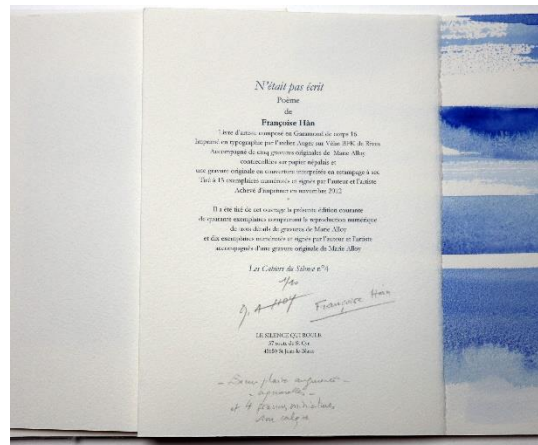 N'était pas écrit
Poème
de
Françoise Hàn
Livre d'artiste composé en Garamond de corps 16
Imprimé en typographie par l'atelier Auger sur Vélin BFK de Rives
Accompagné de cinq gravures originales de Marie Alloy
contrecollées sur papier népalais et
une gravure originale en couverture interprétée en estampage à sec
Tiré à 15 exemplaires numérotés et signés par l'auteur et l'artiste
Achevé d'imprimer en novembre 2012
*
Il a été tiré de cet ouvrage la présente édition courante
de quarante exemplaires comprenant la reproduction numérique
de détails de gravures de Marie Alloy
et dix exemplaires numérotés et signés par l'auteur et l'artiste
accompagnés d'une gravure originale de Marie Alloy
Les Cahiers du Silence n°4
1/10
Françoise Hàn
LE SILENCE QUI ROULE
St Cyr
St Jean le Blanc
et 4